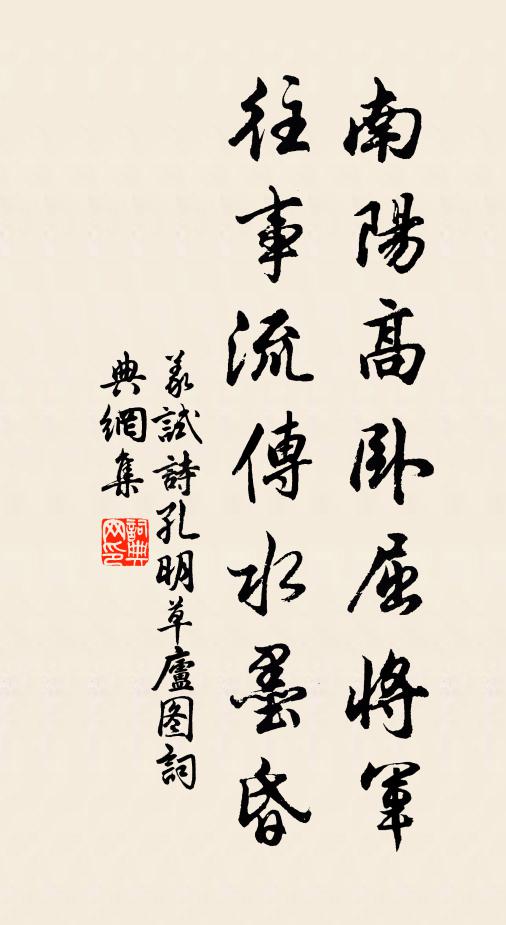 南陽高卧屈將軍
往事流傳水墨昏
義試詩孔明草廬图詞
典網集
詞典
网印